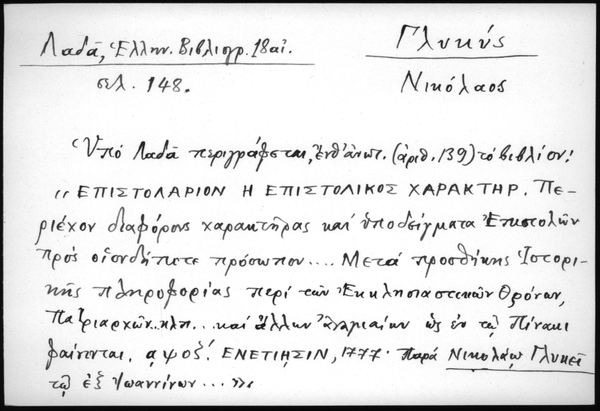 Λαδᾶ, Ἑλλην. Βιβλιογρ. 18 αἰ.
Γλυκύς
σελ. 148.
Νικόλαος
Ὑπό Λαδᾶ περιγράφεται, ἔνθ' ἀνωτ. (ἀριθ. 139) τό βιβλίον:
"ΕΠΙΣΤΟΛΑΡΙΟΝ Η ΕΠΙΣΤΟΛΙΚΟΣ ΧΑΡΑΚΤΗΡ. Πε-
ριέχον διαφόρους χαρακτῆρας καί ὑποδείγματα Ἐπιστολῶν
πρός οἱονδήποτε πρόσωπον.... Μετά προσθήκης Ἱστορι-
κῆς πληροφορίας περί τῶν Ἐκκλησιαστικῶν Θρόνων,
Πατριαρχῶν.. κλπ... καί ἄλλων ἀναγκαίων ὡς ἐν τῷ Πίνακι
φαίνονται. ΕΝΕΤΙΗΣΙΝ, 1777. παρά Νικολάῳ Γλυκεῖ
τῷ ἐξ Ἰωαννίνων... »